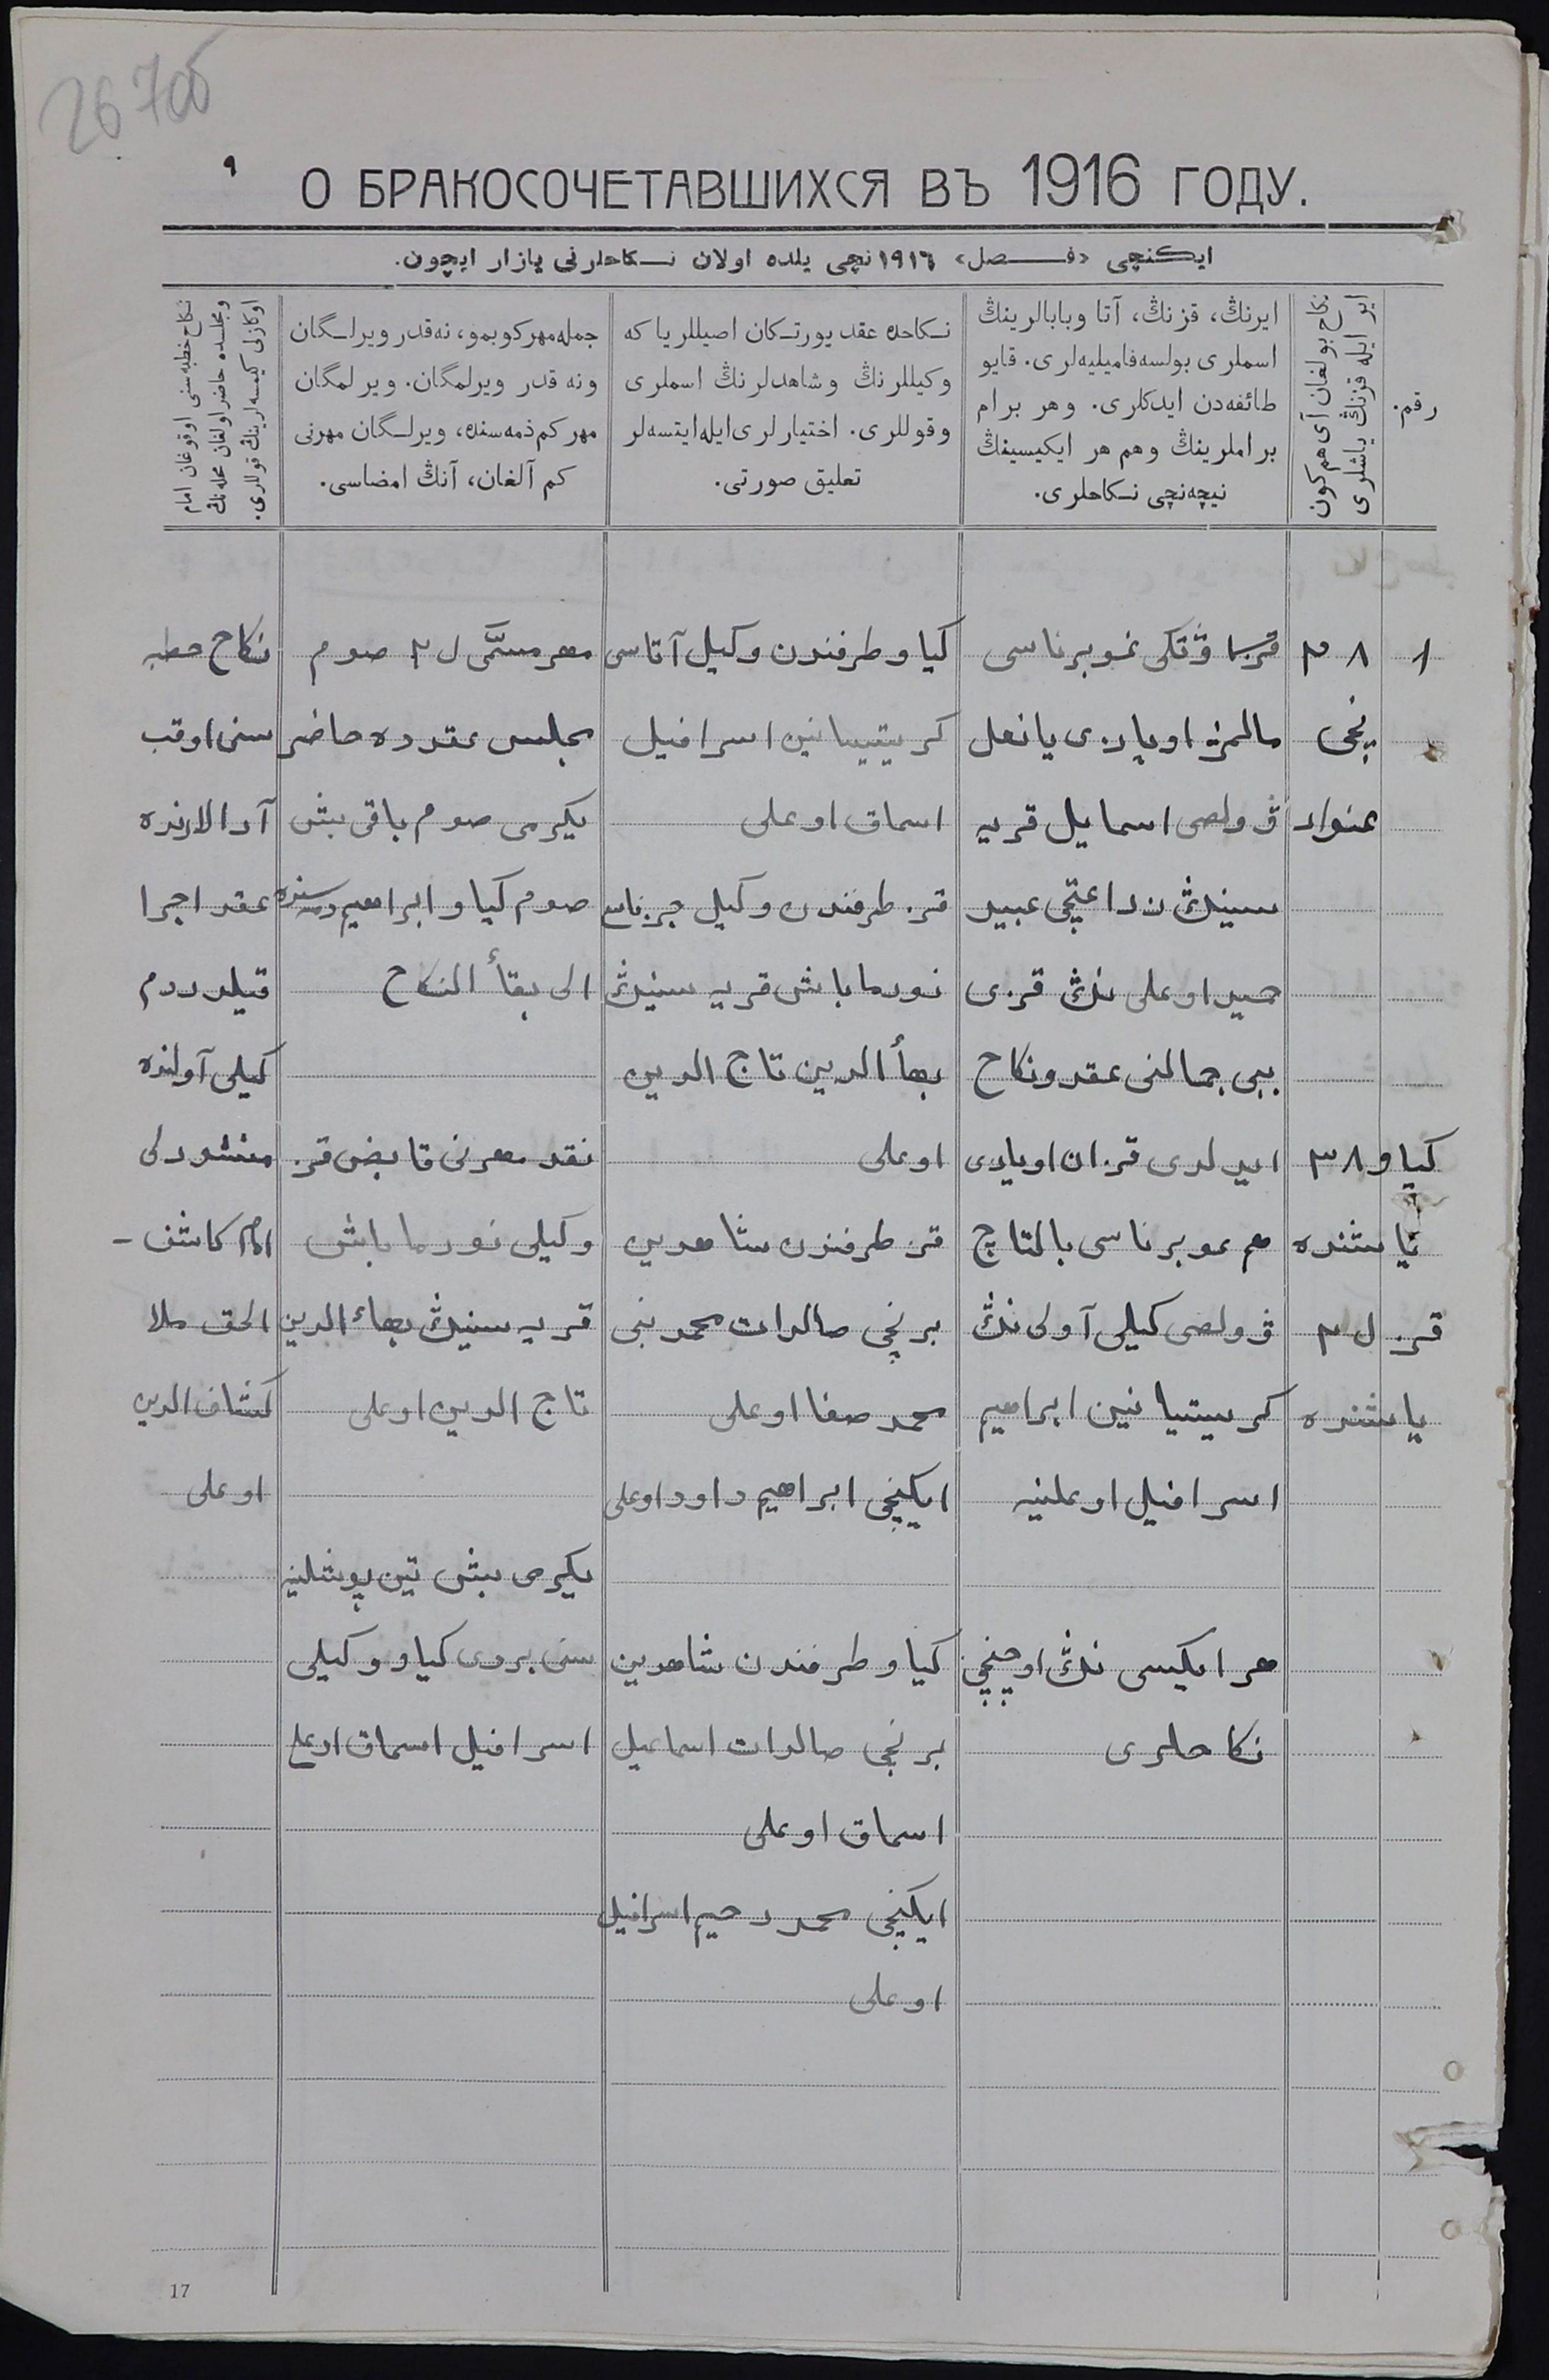 26 7об
٩
О БРАКОСОЧЕТАВШИХСЯ ВЪ 1916 ГОДУ.
ایكنچی «فصل» ١٩١٦ نچی یلده اولان نكاحلرنی یازار ایچون.
رقم.
نكاح بولغان آی هم كون
ایر ایله قزنڭ یاشلری
ایرنڭ، قزنڭ، آتا وبابالرینڭ
اسملری بولسه فامیلیه‌لری. قایو
طائفه‌دن ایدكلری. وهر برام
براملرینڭ وهم هر ایكیسینڭ
نیچه‌نچی نكاحلری.
نكاحده عقد یورتكان اصیللر یا كه
وكیللرنڭ وشاهدلرنڭ اسملری
وقوللری. اختیارلری ایله ایتسه‌لر
تعلیق صورتی.
جمله مهر كوبمو، نه‌قدر ویرلگان
ونه قدر ویرلمگان. ویرلمگان
مهر كم ذمه‌سنده، ویرلگان مهرنی
كم آلغان، آنڭ امضاسی.
نكاح خطبه‌سنی اوقوغان امام
ومجلسده حاضر اولغان محله‌نڭ
اوكازلی كیمسه‌لرینڭ قوللری.
١
٨ ٢
نچی
عنوار
كیاو ٣٨
یاشنده
قز ل ٢
یاشنده
غوبرناسی
مالمز اویازی یانعل
ڤولصی اسمایل قریه
سینڭ عبید
اوعلی نڭ قزی
بیبی جمالنی عقد ونكاح
ایدلدی قزان اویازی
هم عوبرناسی بالتاچ
ڤولصی كیلی آولی نڭ
كریستیانین ابراهیم
اسرافیل اوعلینه
هر ایكیسی نڭ اوچنچی
نكاحلری
كیاو طرفندن وكیل آتاسی
كریتیانین اسرافیل
اسماق اوعلی
قز طرفندن وكیل
نورما باش قریه سینڭ
بهأ الدین تاج الدین
اوعلی
قز طرفندن شاهدین
برنچی صالدات محمد نبی
محمد صفا اوعلی
ایكنچی ابراهیم داود اوعلی
كیاو طرفندن شاهدین
برنچی صالدات اسماعیل
اسماق اوعلی
ایكنچی محمد رحیم اسرافیل
اوعلی
مهر مسمّی ل ٢ صوم
مجلس عقدده حاضر
یكرمی صوم باقی بش
صوم كیاو ابراهیم ذمه‌سنده
الی بقأ النكاح
نقد مهرنی قابض قز
وكیلی نورما باش
قریه سینڭ بهاء الدین
تاج الدین اوعلی
یكرمی بش تین پوشلینه
سنی بردی كیاو وكیلی
اسرافیل اسماق اوعلی
نكاح خطبه
سنی اوقب
آرالارنده
عقد اجرا
قیلدردم
كیلی آولنده
امام كاشف -
الحق ملا
كشاف الدین
اوعلی
17